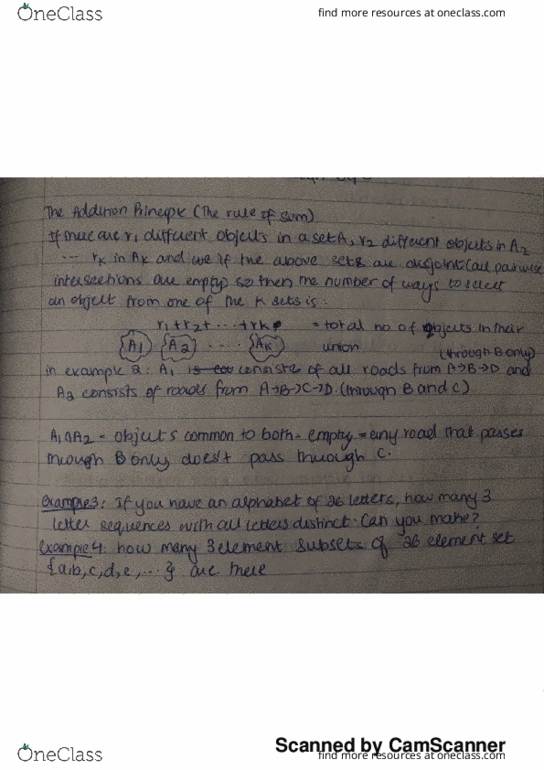 OneClass
find more resources at oneclass.com
The Addition Principle (The rule of sum)
If there are r1 different objects in a set A1, r2 different objects in A2
... rk in Ak and if the above sets are disjoint (all pairwise
intersections are empty) so then the number of ways to select
an object from one of the k sets is:
r1+r2+ ... +rk = total no of objects in their
A1 A2 ..... Ak union
(through B only)
in example 2: A1 consists of all roads from A→B→D and
A2 consists of roads from A→B→C→D (through B and C)
A1∩A2 = objects common to both = empty = any road that passes
through B only does't pass through C.
Example 3: If you have an alphabet of 26 letters, how many 3
letter sequences with all letters distinct can you make?
Example 4: how many 3 element subsets of 26 element set
{a,b,c,d,e,...} are there
Scanned by CamScanner
OneClass
find more resources at oneclass.com